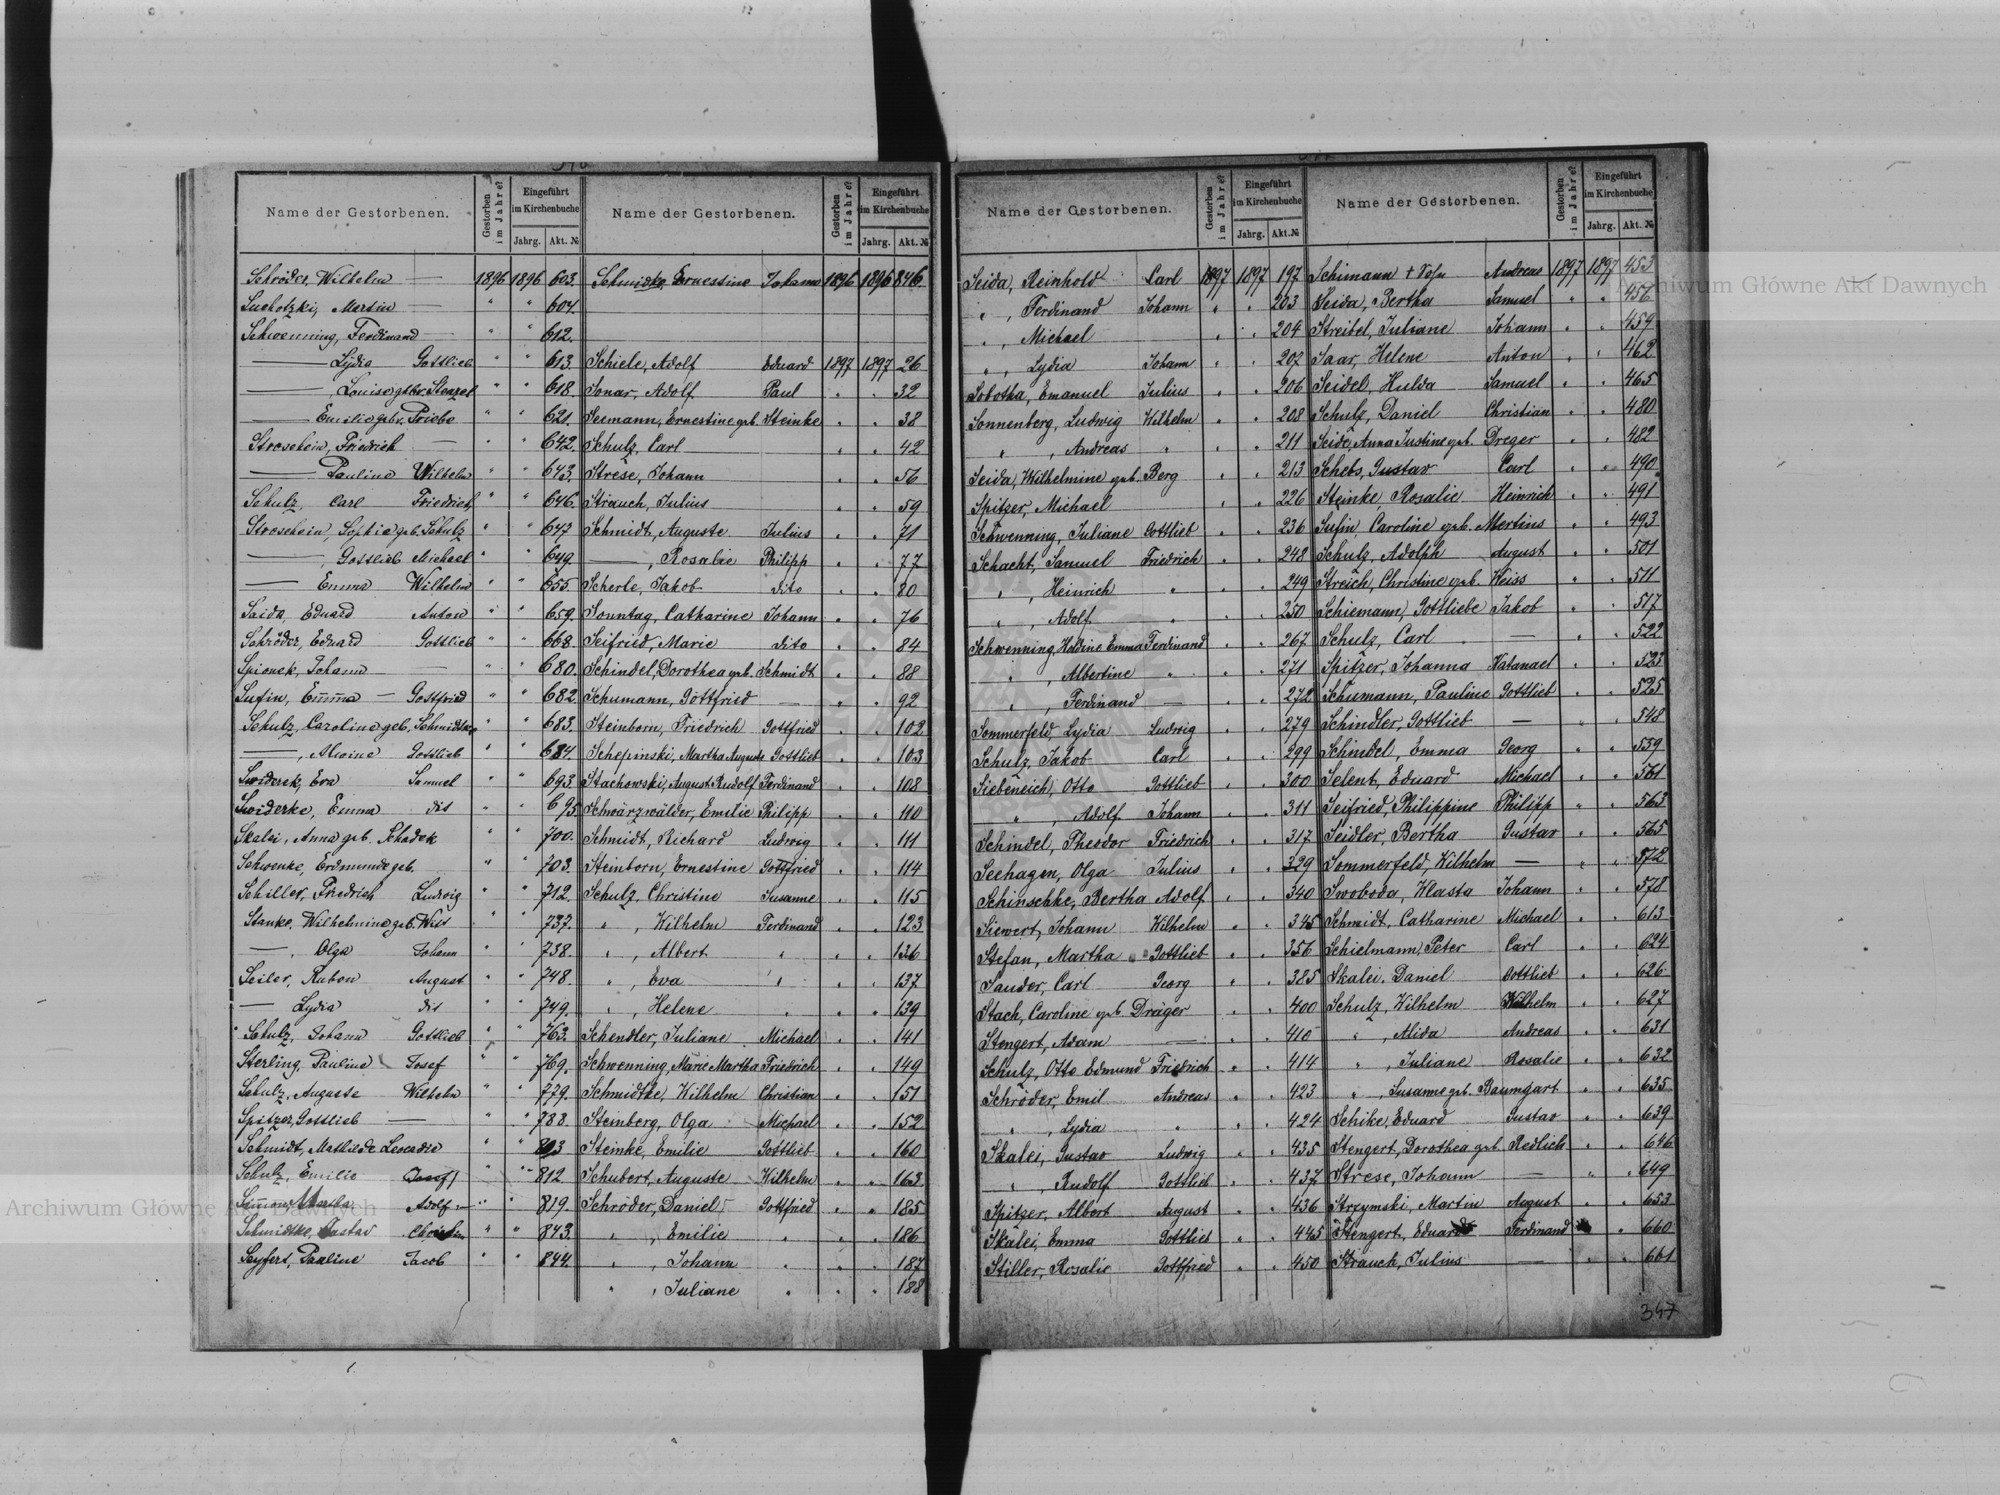 Name der Gestorbenen. Gestorben im Jahre? Eingeführt im Kirchenbuche Jahrg. Akt. №
Schröder, Wilhelm — 1896 1896 603.
Suchotzki, Martin — " " 604.
Schwenning, Ferdinand — " " 612.
— Lydia Gottlieb " " 613.
— Louise geb. Stenzel " " 618.
— Emilie geb. Priebe " " 621.
Stroschein, Friedrich — " " 642.
— Pauline Wilhelm " " 643.
Schulz, Carl Friedrich " " 646.
Stroschein, Sophie geb. Schulz " " 647
—, Gottlieb Michael " " 649.
— Emma Wilhelm " " 655.
Saida, Eduard Anton " " 659.
Schröder, Eduard Gottlieb " " 668.
Spionek, Johann — " " 680.
Sufin, Emma — Gottfried " " 682
Schulz, Caroline geb. Schmidtke " " 683.
—, Alwine Gottlieb " " 684.
Swiderek, Eva Samuel " " 693.
Swiderke, Emma dit " " 695
Skalei, Anna geb. Schadek " " 700.
Schwenke, Erdmunde geb. " " 703.
Schiller, Friedrich Ludwig " " 712.
Stanke, Wilhelmine geb. Wild " " 737.
—, Olga Johann " " 738.
Seiler, Ruben August " " 748.
— Lydia dit " " 749.
Schulz, Johann Gottlieb " " 763.
Sterling, Pauline Josef " " 769.
Schulz, Auguste Wilhelm " " 779.
Spitzer, Gottlieb — " " 788.
Schmidt, Mathilde Leocadie " " 803
Schulz, Emilie Josef " " 812
Simon, Martha Adolf " " 819.
Schmidtke, Gustav Christian " " 843.
Seyfert, Pauline Jacob " " 844.
Name der Gestorbenen. Gestorben im Jahre? Eingeführt im Kirchenbuche Jahrg. Akt. №
Schmidke, Ernestine Johann 1896 1896 846
Schiele, Adolf Eduard 1897 1897 26
Sonar, Adolf Paul " " 32
Seemann, Ernestine geb. Steinke " " 38
Schulz, Carl — " " 42
Strese, Johann " " 56
Strauch, Julius " " 59
Schmidt, Auguste Julius " " 71
—, Rosalie Philipp " " 77
Scherle, Jakob dito " " 80
Sonntag, Catharine Johann " " 76
Seifried, Marie dito " " 84
Schindel, Dorothea geb. Schmidt " " 88
Schumann, Gottfried — " " 92
Steinborn, Friedrich Gottfried " " 102
Schepinski, Martha Auguste Gottlieb " " 103
Stachowski, August Rudolf Ferdinand " " 108
Schwarzwälder, Emilie Philipp " " 110
Schmidt, Richard Ludwig " " 111
Steinborn, Ernestine Gottfried " " 114
Schulz, Christine Susanne " " 115
" , Wilhelm Ferdinand " " 123
" , Albert " " " 136
" , Eva " " " 137
" , Helene " " " 139
Schendler, Juliane Michael " " 141
Schwenning, Marie Martha Friedrich " " 149
Schmidtke, Wilhelm Christian " " 151
Steinberg, Olga Michael " " 152
Steinke, Emilie Gottlieb " " 160
Schubert, Auguste Wilhelm " " 163
Schröder, Daniel Gottfried " " 185
" , Emilie " " " 186
" , Johann " " " 187
" , Juliane " " " 188
Name der Gestorbenen. Gestorben im Jahre? Eingeführt im Kirchenbuche Jahrg. Akt. №
Seida, Reinhold Carl 1897 1897 197
" , Ferdinand Johann " " 203
" , Michael " " 204
" , Lydia Johann " " 207
Sobotka, Emanuel Julius " " 206
Sonnenberg, Ludwig Wilhelm " " 208
" , Andreas " " " 211
Seida, Wilhelmine geb. Berg " " 213
Spitzer, Michael " " 226
Schwenning, Juliane Gottlieb " " 236
Schacht, Samuel Friedrich " " 248
" , Heinrich " " " 249
" , Adolf " " " 250
Schwenning, Holdine Emma Ferdinand " " 267
" , Albertine " " " 271
" , Ferdinand — " " 272
Sommerfeld, Lydia Ludwig " " 279
Schulz, Jakob Carl " " 299
Siebeneich, Otto Gottlieb " " 300
" , Adolf Johann " " 311
Schindel, Theodor Friedrich " " 317
Seehagen, Olga Julius " " 329
Schinschke, Bertha Adolf " " 340
Siewert, Johann Wilhelm " " 345
Stefan, Martha Gottlieb " " 356
Sauder, Carl Georg " " 385
Stach, Caroline geb Dräger " " 400
Stengert, Adam — " " 410
Schulz, Otto Edmund Friedrich " " 414
Schröder, Emil Andreas " " 423
" , Lydia " " " 424
Skalei, Gustav Ludwig " " 435
" , Rudolf Gottlieb " " 437
Spitzer, Albert August " " 436
Skalei, Emma Gottlieb " " 445
Stiller, Rosalie Gottfried " " 450
Name der Gestorbenen. Gestorben im Jahre? Eingeführt im Kirchenbuche Jahrg. Akt. №
Schimann + Sohn Andreas 1897 1897 453
Seida, Bertha Samuel " " 456
Streibel, Juliane Johann " " 459
Saar, Helene Anton " " 462
Seidel, Hulda Samuel " " 465
Schulz, Daniel Christian " " 480
Seide, Anna Justine geb. Dreger " " 482
Schebs, Gustav Carl " " 490
Steinke, Rosalie Heinrich " " 491
Sufin, Caroline geb. Mertins " " 493
Schulz, Adolph August " " 501
Streich, Christine geb. Weiss " " 511
Schiemann, Gottliebe Jakob " " 517
Schulz, Carl — " " 522
Spitzer, Johanna Natanael " " 523
Schumann, Pauline Gottlieb " " 525
Schindler, Gottlieb — " " 548
Schindel, Emma Georg " " 559
Selent, Eduard Michael " " 561
Seifried, Philippine Philipp " " 563
Seidler, Bertha Gustav " " 565
Sommerfeld, Wilhelm — " " 572
Swoboda, Wlasta Johann " " 578
Schmidt, Catharine Michael " " 613
Schielmann, Peter Carl " " 624
Skalei, Daniel Gottlieb " " 626
Schulz, Wilhelm Wilhelm " " 627
" , Alida Andreas " " 631
" , Juliane Rosalie " " 632
" , Susanne geb. Baumgart " " 635
Schike, Eduard Gustav " " 639
Stengert, Dorothea geb Redlich " " 646
Strese, Johann — " " 649
Strzymski, Martin August " " 653
Stengert, Eduard Ferdinand " " 660
Strauch, Julius — " " 661
347
Archiwum Główne Akt Dawnych
Archiwum Główne Akt Dawnych